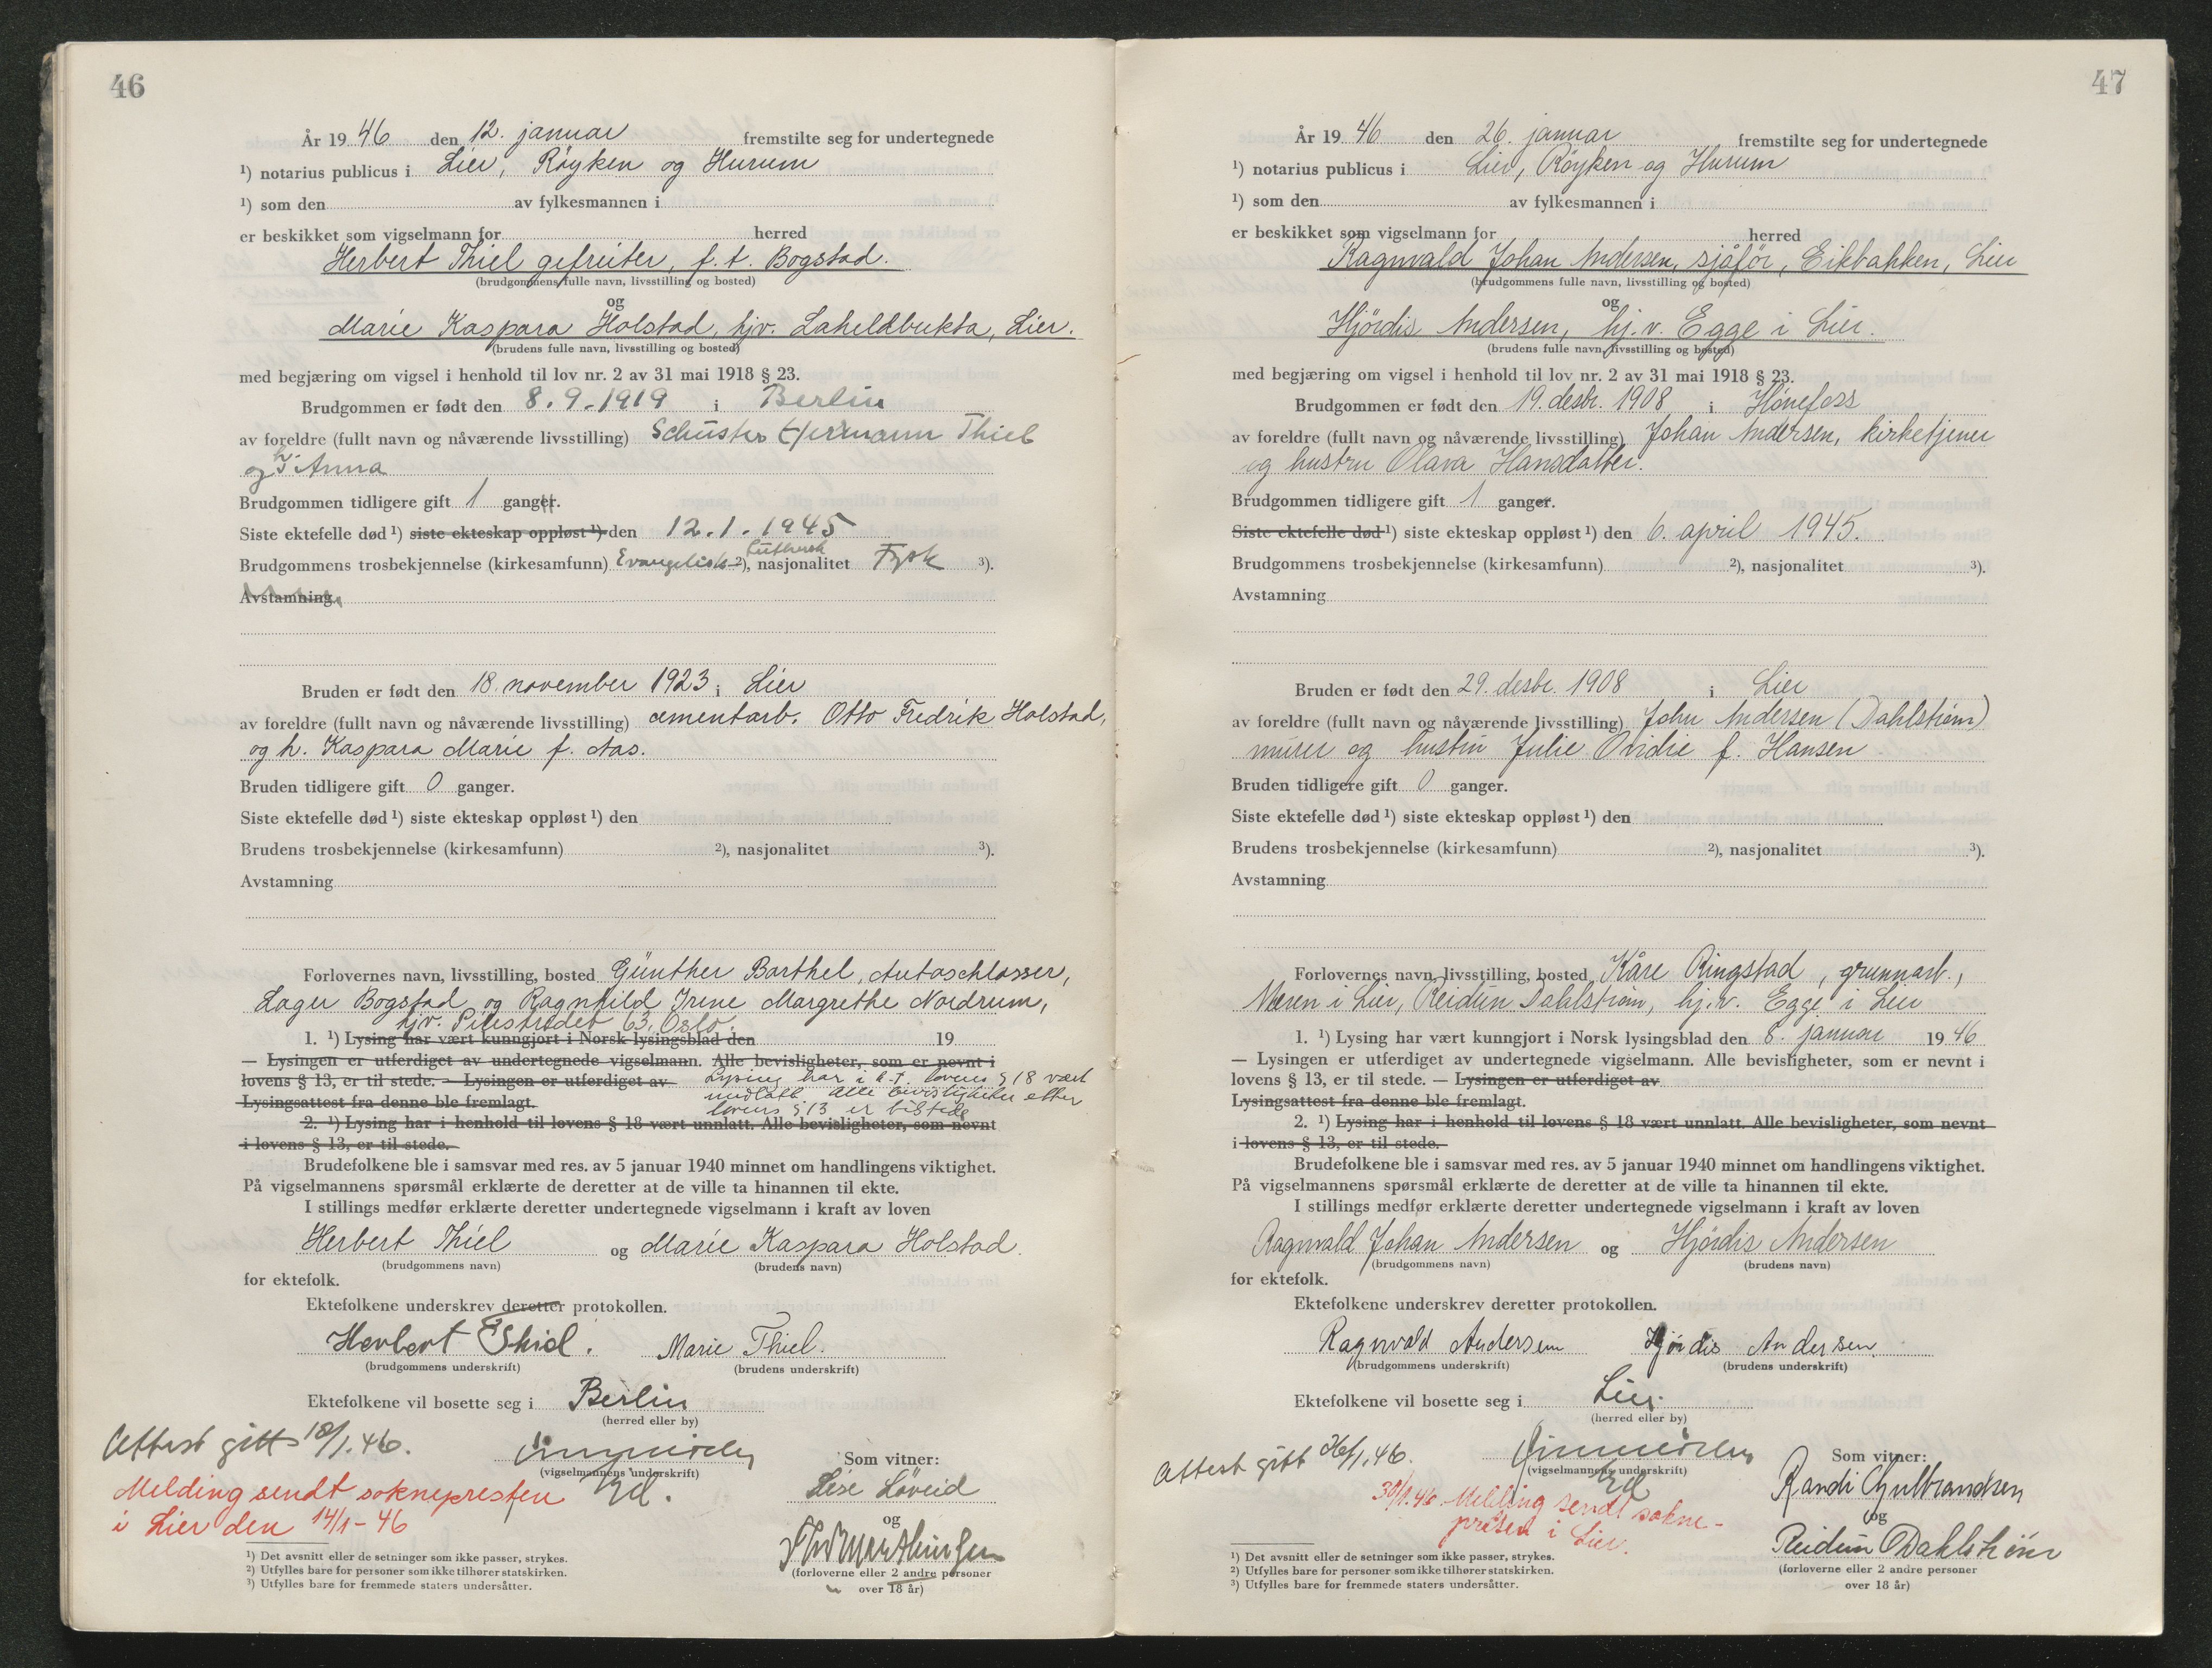 46
År 19 46 den 12. januar fremstilte seg for undertegnede
1) notarius publicus i Lier, Røyken og Hurum
1) som den av fylkesmannen i
er beskikket som vigselmann for herred
Herbert Thiel gefreiter, f. t. Bogstad.
(brudgommens fulle navn, livsstilling og bosted)
og
Marie Kaspara Holstad, hjv. Laheldbukta, Lier.
(brudens fulle navn, livsstilling og bosted)
med begjæring om vigsel i henhold til lov nr. 2 av 31 mai 1918 § 23.
Brudgommen er født den 8.9.1919 i Berlin
av foreldre (fullt navn og nåværende livsstilling) Schuster Hermann Thiel
og Anna
Brudgommen tidligere gift 1 ganger.
Siste ektefelle død 1) siste ekteskap oppløst 1) den 12.1.1945
Brudgommens trosbekjennelse (kirkesamfunn) Evangelisk-Luthersk 2), nasjonalitet Tysk 3).
Avstamning
Bruden er født den 18. november 1923 i Lier
av foreldre (fullt navn og nåværende livsstilling) cementarb. Otto Fredrik Holstad,
og h. Kaspara Marie f. Aas.
Bruden tidligere gift 0 ganger.
Siste ektefelle død 1) siste ekteskap oppløst 1) den
Brudens trosbekjennelse (kirkesamfunn) 2), nasjonalitet 3).
Avstamning
Forlovernes navn, livsstilling, bosted Günther Barthel, Autoschlosser,
Lager Bogstad og Ragnhild Irene Margrethe Nordrum,
hjv. Pilestredet 63, Oslo.
1. 1) Lysing har vært kunngjort i Norsk lysingsblad den 19
— Lysingen er utferdiget av undertegnede vigselmann. Alle bevisligheter, som er nevnt i
lovens § 13, er til stede. — Lysingen er utferdiget av Lysing har i h.t. lovens § 18 vært
Lysingsattest fra denne ble fremlagt. unnlatt. Alle bevisligheter etter
lovens § 13 er tilstede
2. 1) Lysing har i henhold til lovens § 18 vært unnlatt. Alle bevisligheter, som nevnt
i lovens § 13, er til stede.
Brudefolkene ble i samsvar med res. av 5 januar 1940 minnet om handlingens viktighet.
På vigselmannens spørsmål erklærte de deretter at de ville ta hinannen til ekte.
I stillings medfør erklærte deretter undertegnede vigselmann i kraft av loven
Herbert Thiel og Marie Kaspara Holstad.
(brudgommens navn) (brudens navn)
for ektefolk.
Ektefolkene underskrev deretter protokollen.
Herbert Thiel. Marie Thiel.
(brudgommens underskrift) (brudens underskrift)
Ektefolkene vil bosette seg i Berlin
(herred eller by)
Attest gitt 12/1.46.
(vigselmannens underskrift)
Som vitner:
Melding sendt soknepresten
i Lier den 14/1-46
Lise Löveid
og
(forloverne eller 2 andre personer
over 18 år)
1) Det avsnitt eller de setninger som ikke passer, strykes.
2) Utfylles bare for personer som ikke tilhører statskirken.
3) Utfylles bare for fremmede staters undersåtter.
47
År 19 46 den 26. januar fremstilte seg for undertegnede
1) notarius publicus i Lier, Røyken og Hurum
1) som den av fylkesmannen i
er beskikket som vigselmann for herred
Ragnvald Johan Andersen, sjåfør, Eikbakken, Lier
(brudgommens fulle navn, livsstilling og bosted)
og
Hjördis Andersen, hj.v. Egge i Lier.
(brudens fulle navn, livsstilling og bosted)
med begjæring om vigsel i henhold til lov nr. 2 av 31 mai 1918 § 23.
Brudgommen er født den 19. desbr. 1908 i Hönefoss
av foreldre (fullt navn og nåværende livsstilling) Johan Andersen, kirketjener
og hustru Olava Hansdatter.
Brudgommen tidligere gift 1 ganger.
Siste ektefelle død 1) siste ekteskap oppløst 1) den 6. april 1945.
Brudgommens trosbekjennelse (kirkesamfunn) 2), nasjonalitet 3).
Avstamning
Bruden er født den 29. desbr. 1908 i Lier
av foreldre (fullt navn og nåværende livsstilling) John Andersen (Dahlström)
murer og hustru Julie Ovidie f. Hansen
Bruden tidligere gift 0 ganger.
Siste ektefelle død 1) siste ekteskap oppløst 1) den
Brudens trosbekjennelse (kirkesamfunn) 2), nasjonalitet 3).
Avstamning
Forlovernes navn, livsstilling, bosted Kåre Ringstad, grunnarb.,
Meren i Lier, Reidun Dahlström, hj.v. Egge i Lier
1. 1) Lysing har vært kunngjort i Norsk lysingsblad den 8. januar 19 46
— Lysingen er utferdiget av undertegnede vigselmann. Alle bevisligheter, som er nevnt i
lovens § 13, er til stede. — Lysingen er utferdiget av
Lysingsattest fra denne ble fremlagt.
2. 1) Lysing har i henhold til lovens § 18 vært unnlatt. Alle bevisligheter, som nevnt
i lovens § 13, er til stede.
Brudefolkene ble i samsvar med res. av 5 januar 1940 minnet om handlingens viktighet.
På vigselmannens spørsmål erklærte de deretter at de ville ta hinannen til ekte.
I stillings medfør erklærte deretter undertegnede vigselmann i kraft av loven
Ragnvald Johan Andersen og Hjördis Andersen
(brudgommens navn) (brudens navn)
for ektefolk.
Ektefolkene underskrev deretter protokollen.
Ragnvald Andersen Hjördis Andersen
(brudgommens underskrift) (brudens underskrift)
Ektefolkene vil bosette seg i Lier.
(herred eller by)
Attest gitt 26/1.46.
(vigselmannens underskrift)
Som vitner:
30/1.46. Melding sendt sokne-
presten i Lier.
Randi Gulbrandsen
og
Reidun Dahlström
(forloverne eller 2 andre personer
over 18 år)
1) Det avsnitt eller de setninger som ikke passer, strykes.
2) Utfylles bare for personer som ikke tilhører statskirken.
3) Utfylles bare for fremmede staters undersåtter.